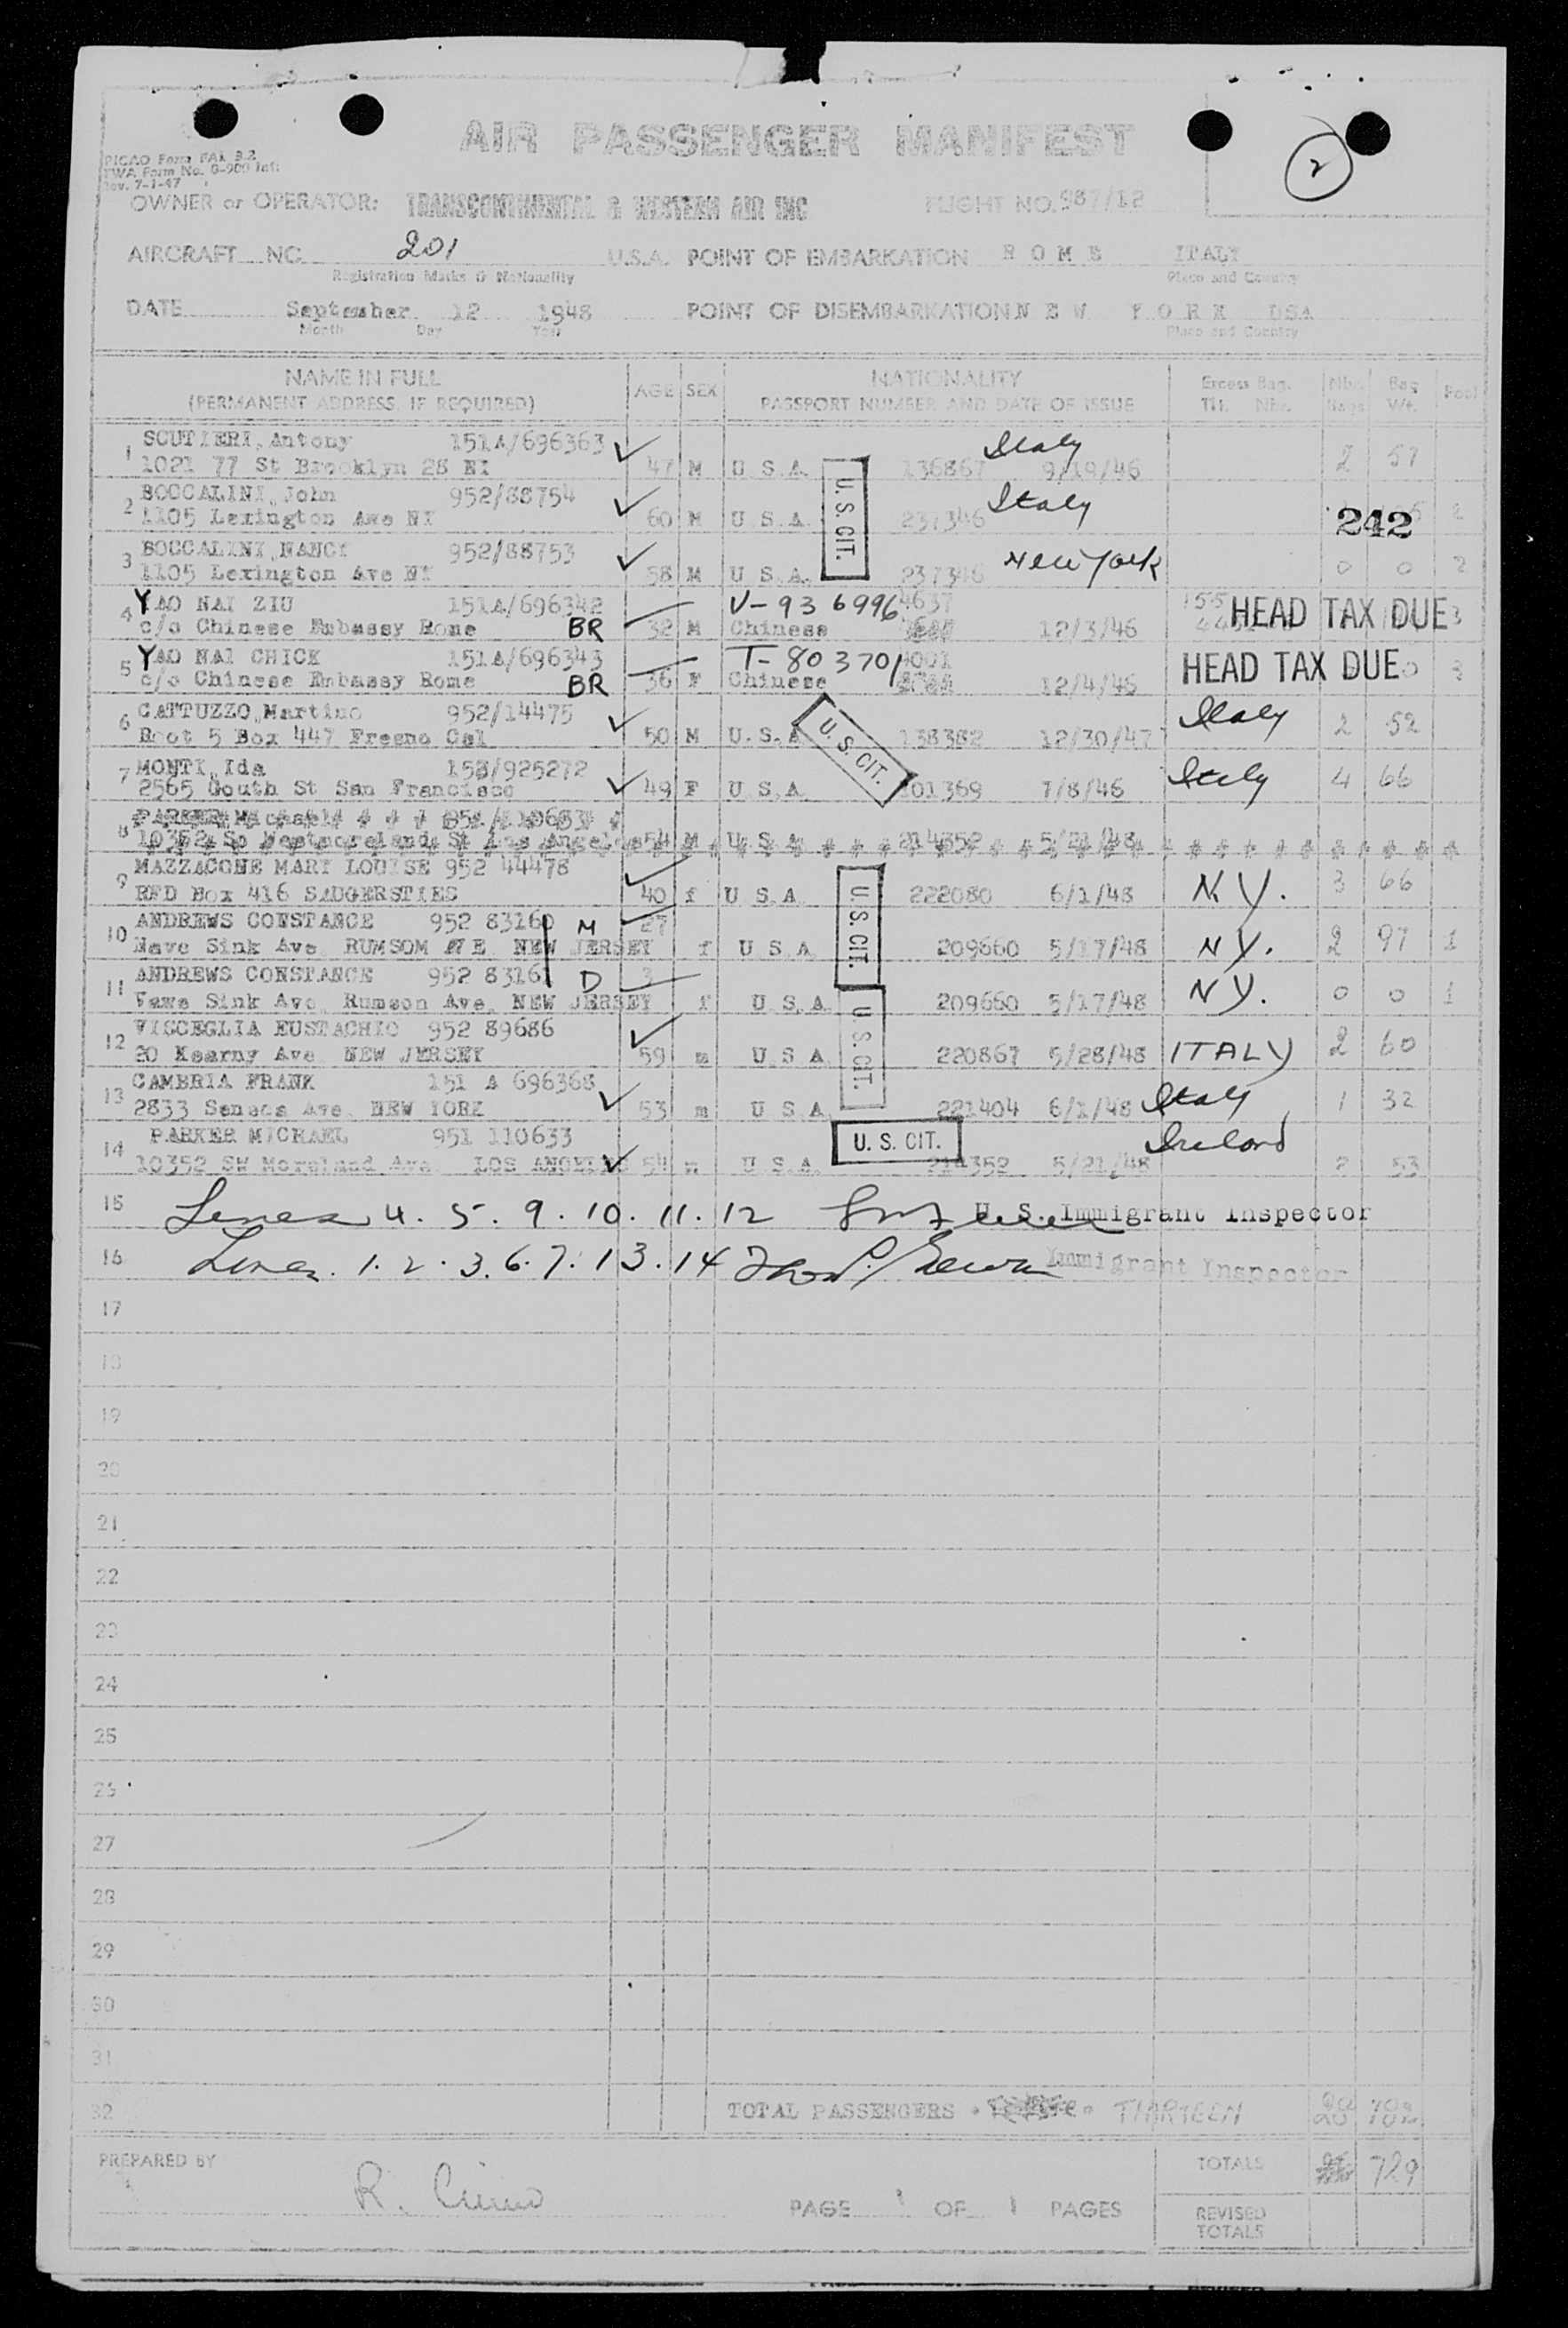 AIR PASSENGER MANIFEST
2
PICAO Form FAL 3.2
TWA Form No. G-900 Int:
Rev. 7-1-47
OWNER or OPERATOR: TRANSCONTINENTAL & WESTERN AIR INC FLIGHT NO. 987/12
AIRCRAFT NC 201 U.S.A. POINT OF EMBARKATION ROME ITALY
Registration Marks & Nationality Place and Country
DATE September 12 1948 POINT OF DISEMBARKATION NEW YORK USA
Month Day Year Place and Country
NAME IN FULL AGE SEX NATIONALITY Excess Bag. Nbr. Bag Pool
(PERMANENT ADDRESS, IF REQUIRED) PASSPORT NUMBER AND DATE OF ISSUE Tkt. Nbr. Bags Wt.
1 SCUTIERI, Antony 151A/696363 Italy
1021 77 St Brooklyn 28 NY 47 M U.S.A. 136867 9/19/46 2 57
2 BOCCALINI, John 952/88754 Italy
1105 Lexington Ave NY 60 M U.S.A. U.S. CIT. 237346 242 2
3 BOCCALINI, NANCY 952/88753 New York
1105 Lexington Ave NY 58 M U.S.A. 237346 0 0 2
4 YAO NAI ZIU 151A/696342 V-936996 4637 HEAD TAX DUE 3
c/o Chinese Embassy Rome BR 32 M Chinese 12/3/46
5 YAO NAI CHICK 151A/696343 T-803701 4001 HEAD TAX DUE 3
c/o Chinese Embassy Rome BR 36 F Chinese 12/4/46
6 CATTUZZO, Martino 952/14475 Italy
Root 5 Box 447 Fresno Cal 50 M U.S.A. U.S. CIT. 138382 12/30/47 2 52
7 MONTI, Ida 158/925272 Italy
2565 Gouth St San Francisco 49 F U.S.A. 101369 7/8/46 4 66
8 PARKER Michael 951/110633
10352 So Westmoreland St Los Angeles 54 M U.S.A. 214352 5/21/48
9 MAZZACONE MARY LOUISE 952 44478
RFD Box 416 SAUGERSTIES 40 f U.S.A. 222080 6/1/48 N.Y. 3 66
10 ANDREWS CONSTANCE 952 83160 M 27 U.S. CIT.
Nave Sink Ave. RUMSOM NE NEW JERSEY f U.S.A. 209660 5/17/48 N.Y. 2 97 1
11 ANDREWS CONSTANCE 952 83161 D 3
Vawe Sink Ave. Rumson Ave. NEW JERSEY f U.S.A. 209660 5/17/48 N.Y. 0 0 1
12 VISCEGLIA EUSTACHIO 952 89686 U.S. CIT.
20 Kearny Ave. NEW JERSEY 59 m U.S.A. 220867 5/28/48 ITALY 2 60
13 CAMBRIA FRANK 151 A 696368
2833 Seneca Ave. NEW YORK 53 m U.S.A. 221404 6/1/48 Italy 1 32
14 PARKER MICHAEL 951 110633 U.S. CIT. Ireland
10352 SW Moreland Ave. LOS ANGELES 54 m U.S.A. 214352 5/21/48 2 53
15 Lines 4. 5. 9. 10. 11. 12 U.S. Immigrant Inspector
16 Lines. 1. 2. 3. 6. 7. 13. 14 Immigrant Inspector
17
18
19
20
21
22
23
24
25
26
27
28
29
30
31
32 TOTAL PASSENGERS THIRTEEN
PREPARED BY R. TOTALS 729
PAGE 1 OF 1 PAGES REVISED
TOTALS